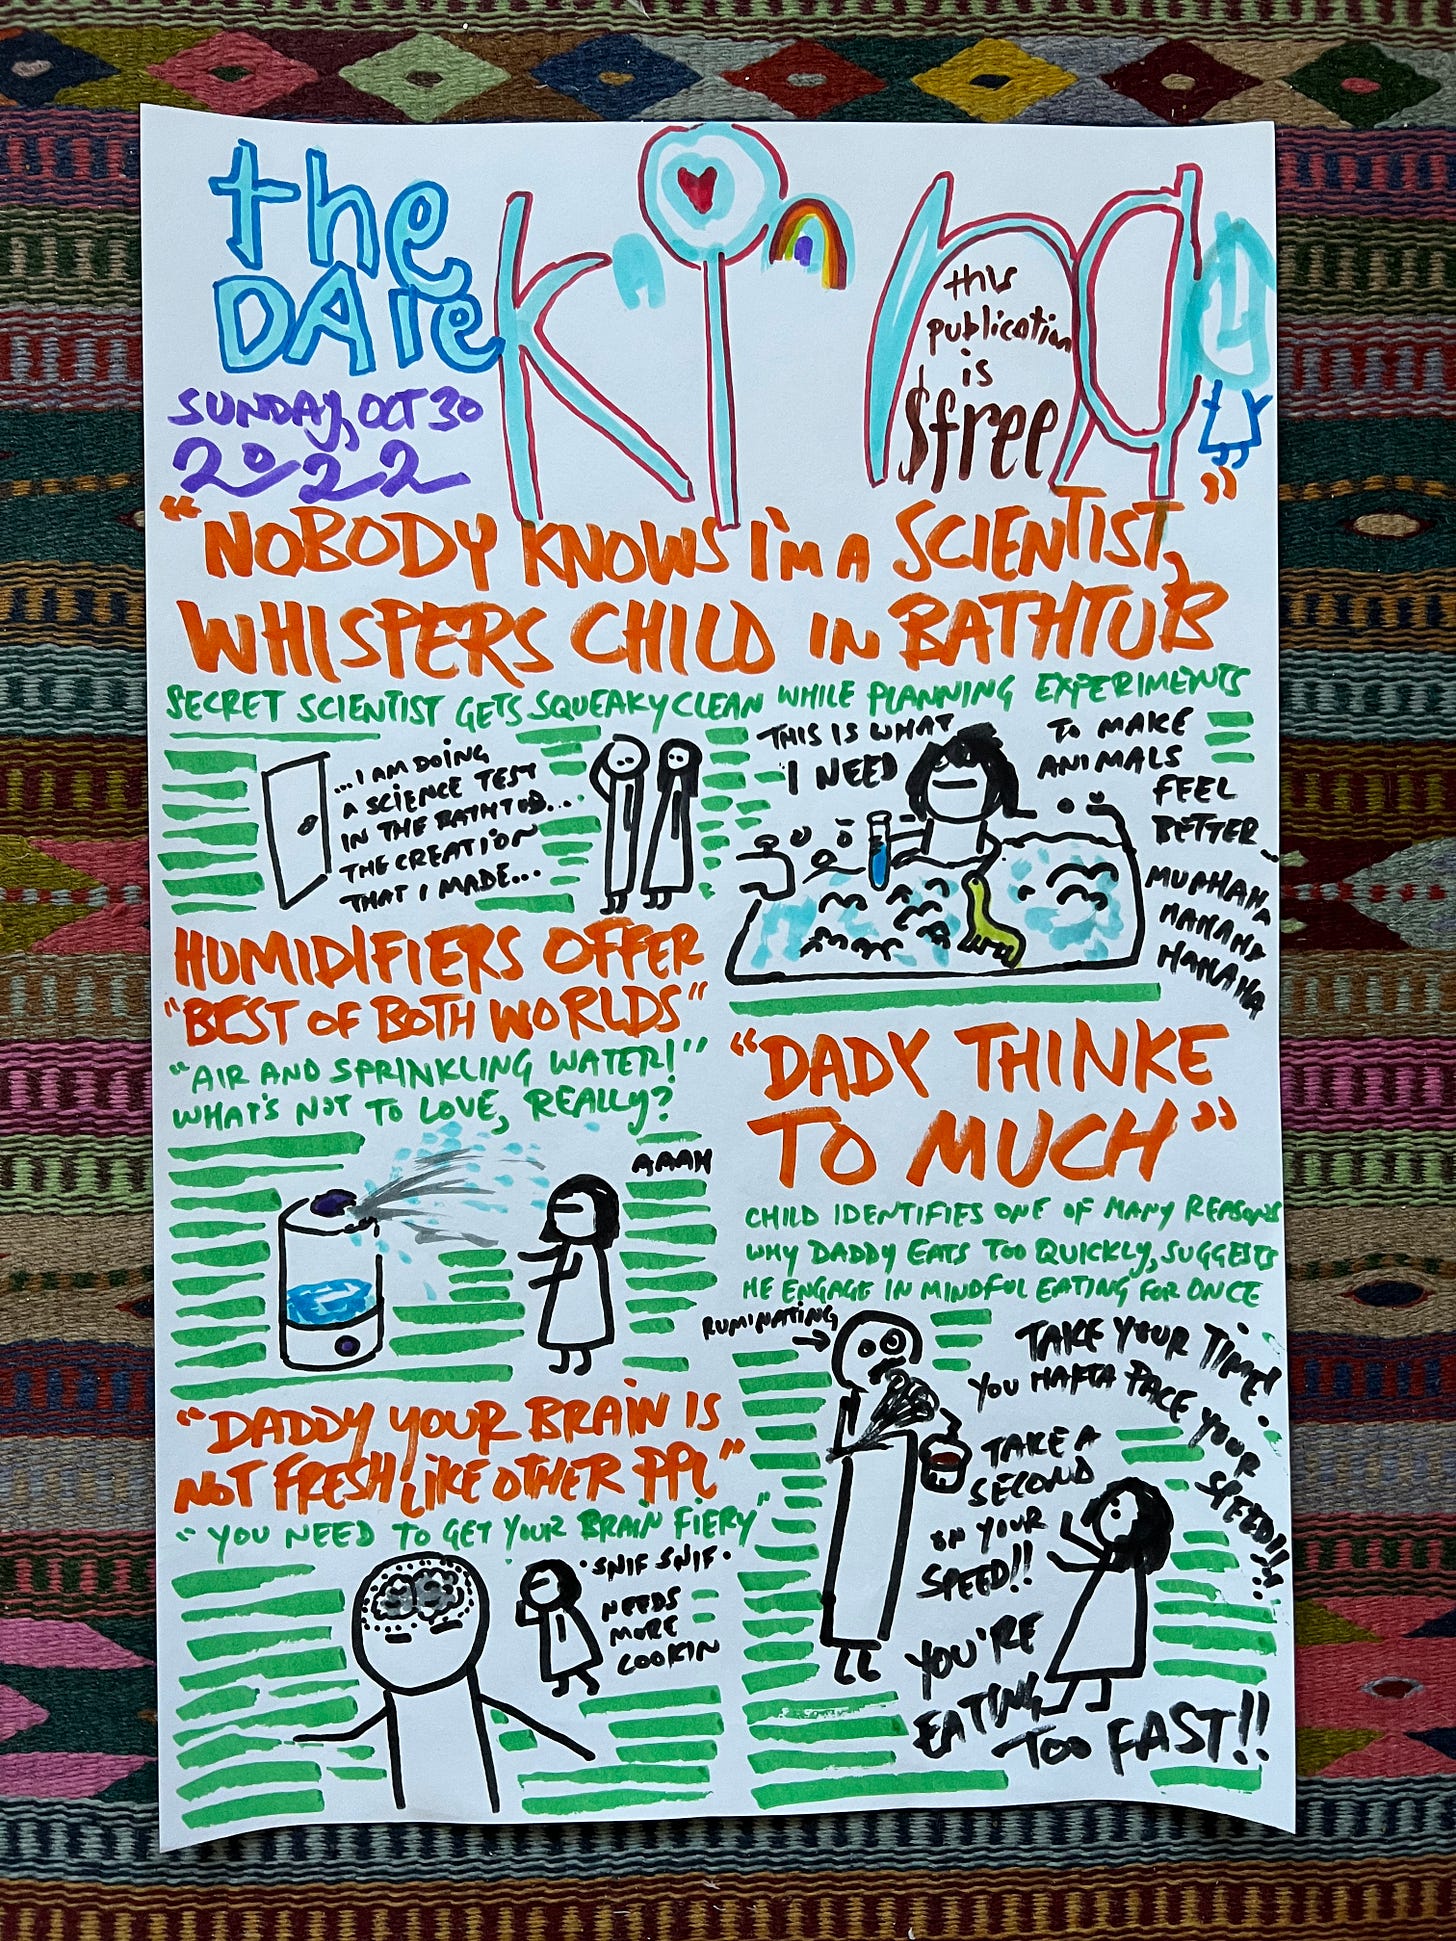 the
DAILY
KiNd
this
publication
is
$free
SUNDAY, OCT 30
2022
"NOBODY KNOWS I'M A SCIENTIST,"
WHISPERS CHILD IN BATHTUB
SECRET SCIENTIST GETS SQUEAKY CLEAN WHILE PLANNING EXPERIMENTS
...I AM DOING
A SCIENCE TEST
IN THE BATHTUB...
THE CREATION
THAT I MADE...
THIS IS WHAT
I NEED
TO MAKE
ANIMALS
FEEL
BETTER
MUAHAHA
HAHAHA
HAHAHA
HUMIDIFIERS OFFER
"BEST OF BOTH WORLDS"
"AIR AND SPRINKLING WATER!"
WHAT'S NOT TO LOVE, REALLY?
AAAH
"DADDY YOUR BRAIN IS
NOT FRESH LIKE OTHER PPL"
"YOU NEED TO GET YOUR BRAIN FIERY"
·SNIF SNIF·
NEEDS
MORE
COOKIN
"DADY THINKE
TO MUCH"
CHILD IDENTIFIES ONE OF MANY REASONS
WHY DADDY EATS TOO QUICKLY, SUGGESTS
HE ENGAGE IN MINDFUL EATING FOR ONCE
RUMINATING
TAKE YOUR TIME!
YOU HAFTA PACE YOUR SPEED!!!
TAKE A
SECOND
ON YOUR
SPEED!!
YOU'RE
EATING
TOO FAST!!